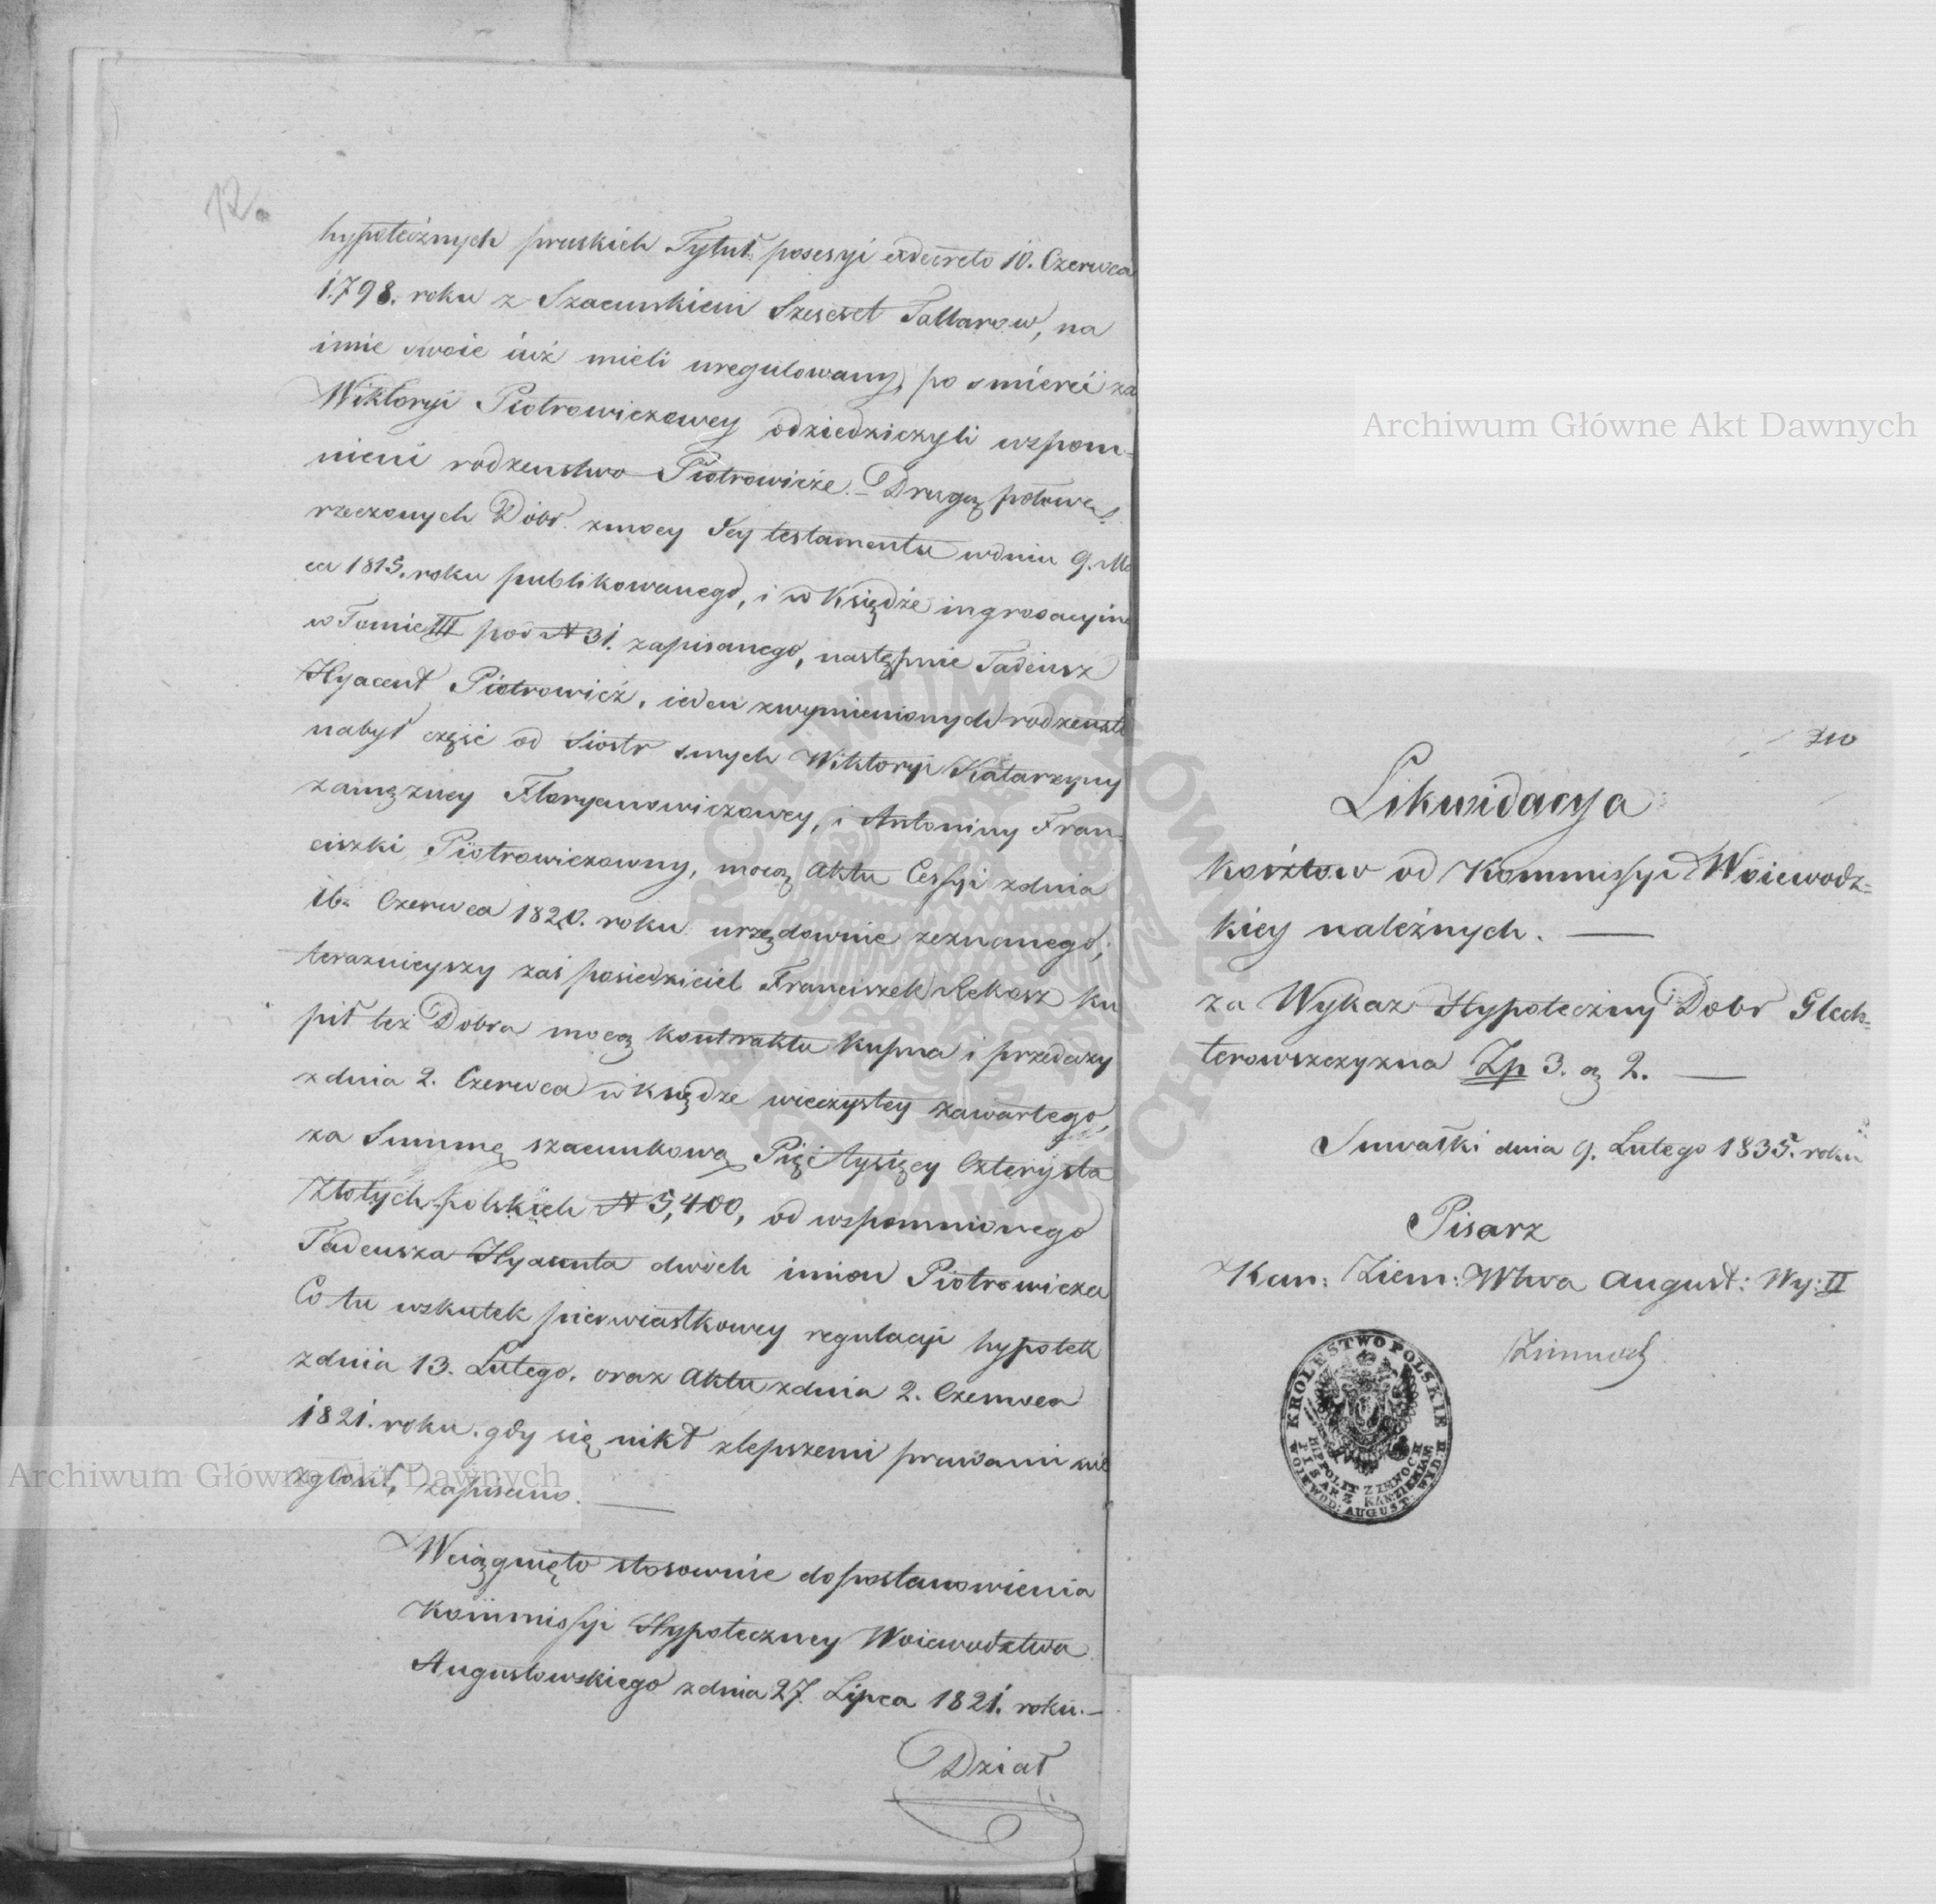 12.
hypotecznych pruskich Tytuł posesyi exdecreto 10. Czerwca
1798. roku z Szacunkiem Szescset Tallarow, na
imie swoie iuż mieli uregulowany, po smierci zaś
Wiktoryi Piotrowiczowey odziedziczyli wspom=
nieni rodzenstwo Piotrowicze. – Drugą połowę
rzeczonych Dóbr zmocy Jey testamentu wdniu 9. Ma
ca 1815. roku publikowanego, i w Księdze ingrosacyine
w Tomie III pod N 31. zapisanego, następnie Tadeusz
Hyacent Piotrowicz, ieden zwymienionych rodzenst
nabył częśc od Siostr swych Wiktoryi Katarzyny
zamężney Floryanowiczowey, i Antoniny Fran=
ciszki Piotrowiczowny, mocą Aktu Cessyi zdnia
16= Czerwca 1820. roku urzędownie zeznanego;
teraznieyszy zaś posiedziciel Franciszek Rekosz ku
pił też Dobra mocą kontraktu Kupna i przedazy
zdnia 2. Czerwca w księdze wieczystey zawartego,
za Summę szacunkową Pięć tysięcy Czterysta
Złotych polskich N 5,400, od wspomnionego
Tadeusza Hyacenta dwóch imion Piotrowicza
Co tu wskutek pierwiastkowey regulacyi hypotek
zdnia 13. Lutego. oraz Aktu zdnia 2. Czerwca
1821. roku. gdy się nikt zlepszemi prawami nie
zgłosił, zapisano.
Wciągnięto stosownie dopostanowienia
Kommissyi Hypoteczney Woiewodztwa
Augustowskiego zdnia 27. Lipca 1821. roku. –
Dział
Likwidacya
kosztow od Kommissyi Woiewodz=
kiey należnych. —
za Wykaz Hypoteczny Dobr Glech=
terowszczyzna Zp 3. g 2. —
Suwałki dnia 9. Lutego 1835. roku
Pisarz
Kan: Ziem: Wtwa August: Wy: II
Zimnoch
KROLESTWO POLSKIE
HIPPOLIT ZIMNOCH
PISARZ KAN: ZIEMIAN:
WOIEWOD: AUGUST: WYDZ: II
Archiwum Główne Akt Dawnych
Archiwum Główne Akt Dawnych
ARCHIWUM GŁÓWNE AKT DAWNYCH